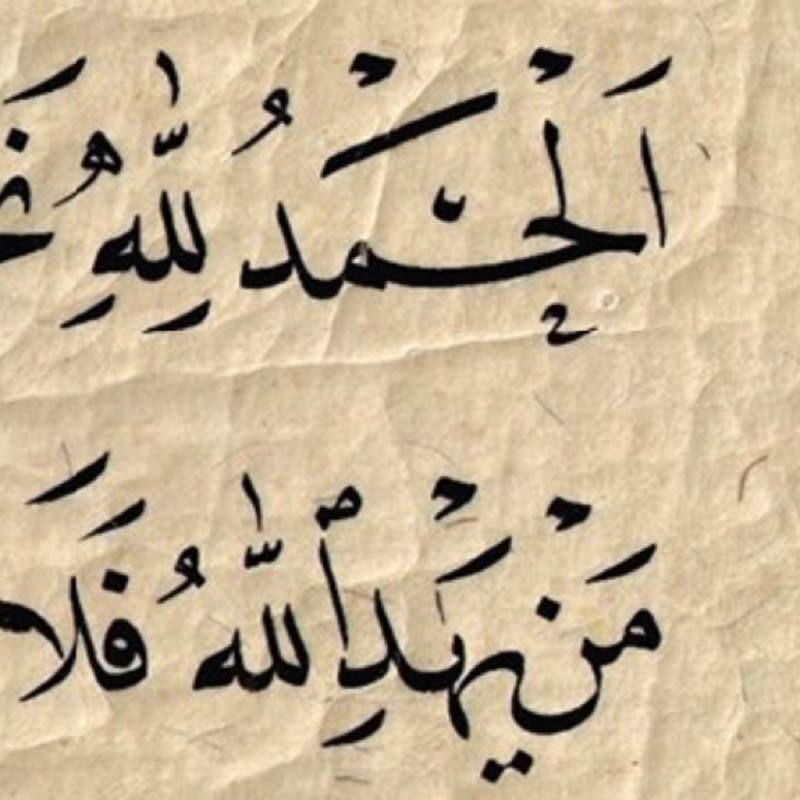 اَلْحَمْدُ لِلّٰهِ
مَنْ يَهْدِ اللّٰهُ فَلَا